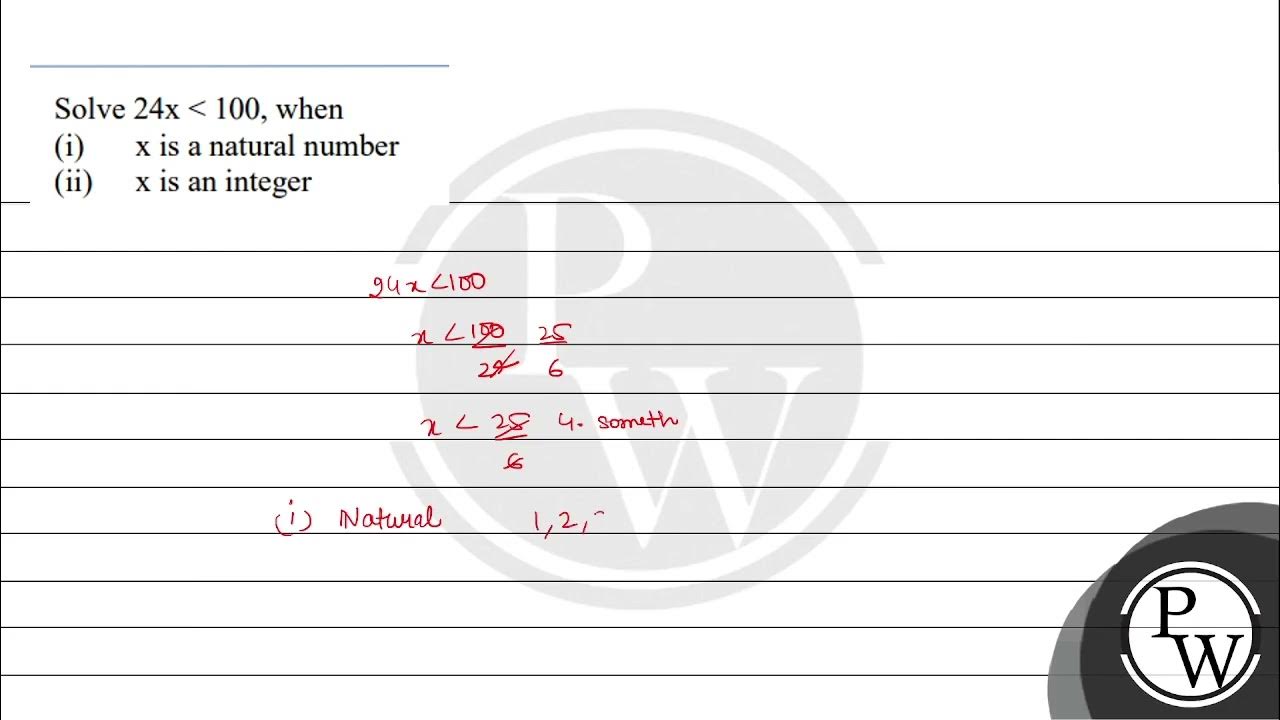 Solve 24x < 100, when
(i) x is a natural number
(ii) x is an integer
24x < 100
x < 100/24 25/6
x < 25/6 4. someth
(i) Natural 1, 2,
PW
PW